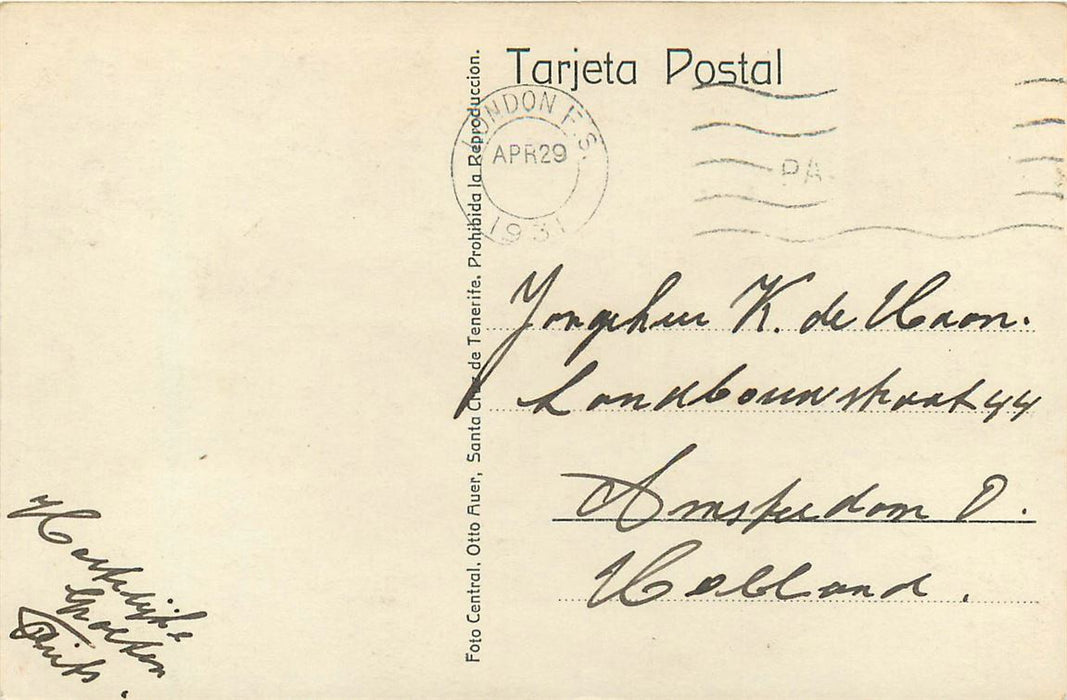 Tarjeta Postal
LONDON F.S.
APR 29
1931
PA
Foto Central, Otto Auer, Santa Cruz de Tenerife. Prohibida la Reproduccion.
Jongeheer K. de Haan.
Landbouwstraat 44
Amsterdam O.
Holland.
Hartelijke
Groeten
Frits.